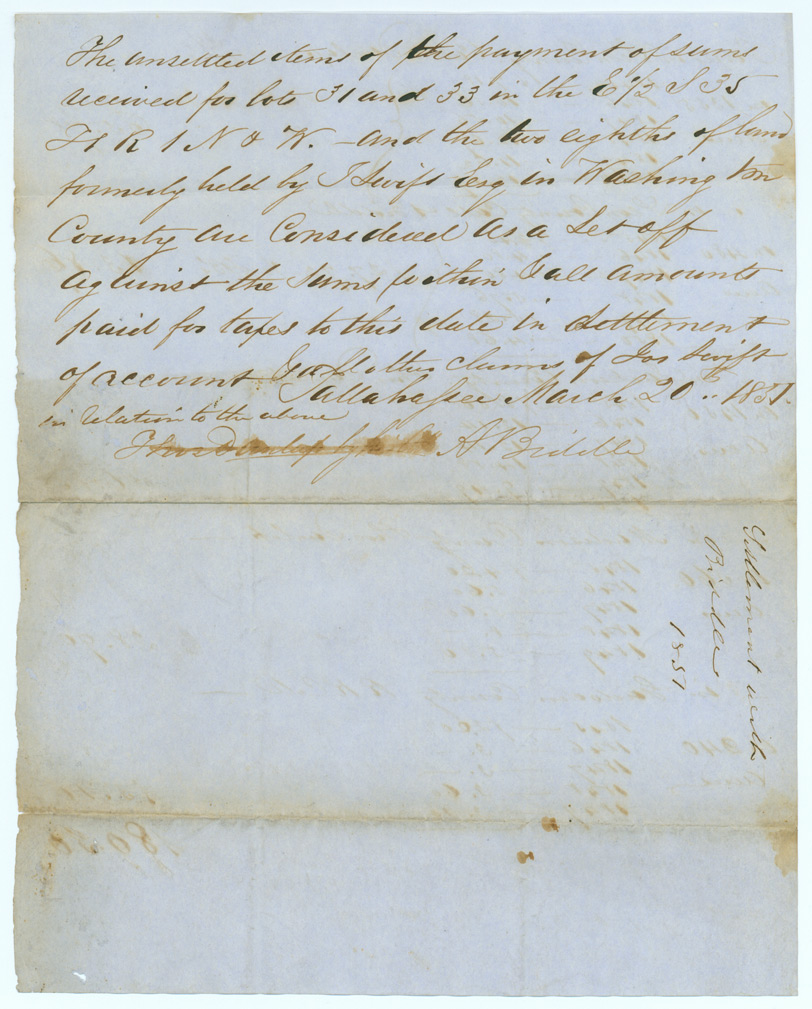 The unsettled items of the payment of sums
received for lots 31 and 33 in the E 1/2 S 35
T 1 R 1 N & W. – and the two eighths of land
formerly held by J Swift Esq in Washington
County are Considered as a Set off
against the sums within & all amounts
paid for taxes to this date in settlement
of account & all other claims of Jos Swift
in relation to the above
Tallahassee March 20.. 1851.
A Biddle
Settlement with
Biddle
1851